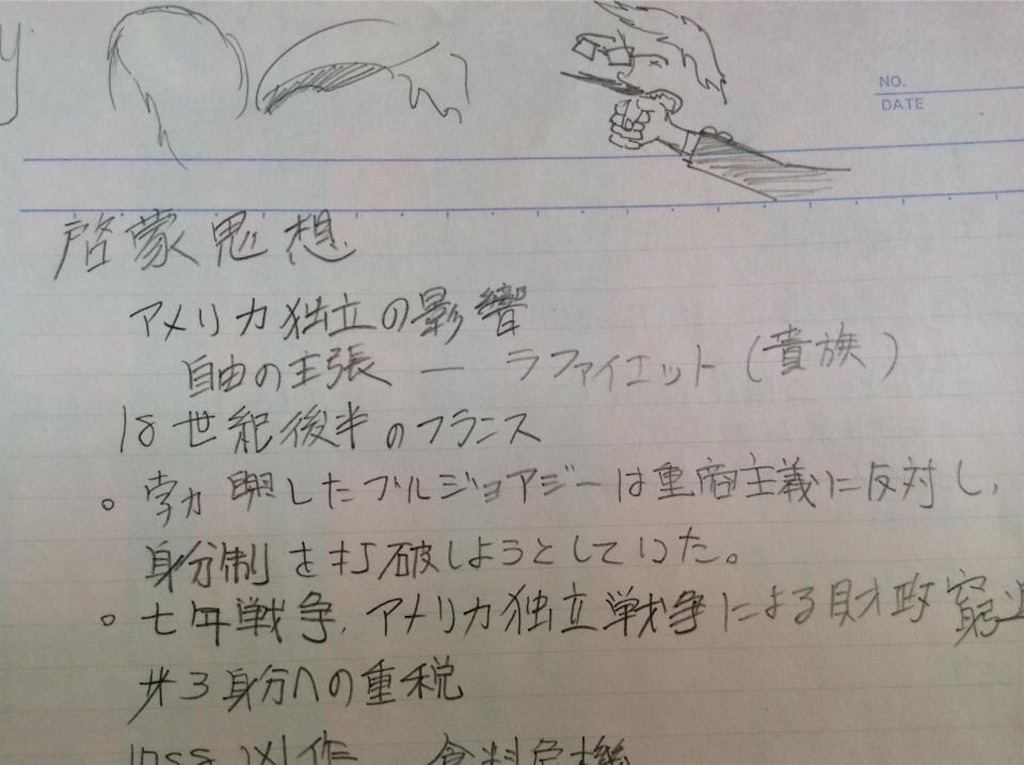 NO.
DATE
啓蒙思想
アメリカ独立の影響
自由の主張 — ラファイエット(貴族)
18世紀後半のフランス
。勃興したブルジョアジーは重商主義に反対し、
身分制を打破しようとしていた。
。七年戦争、アメリカ独立戦争による財政窮迫
オ3身分への重税
凶作 食料危機